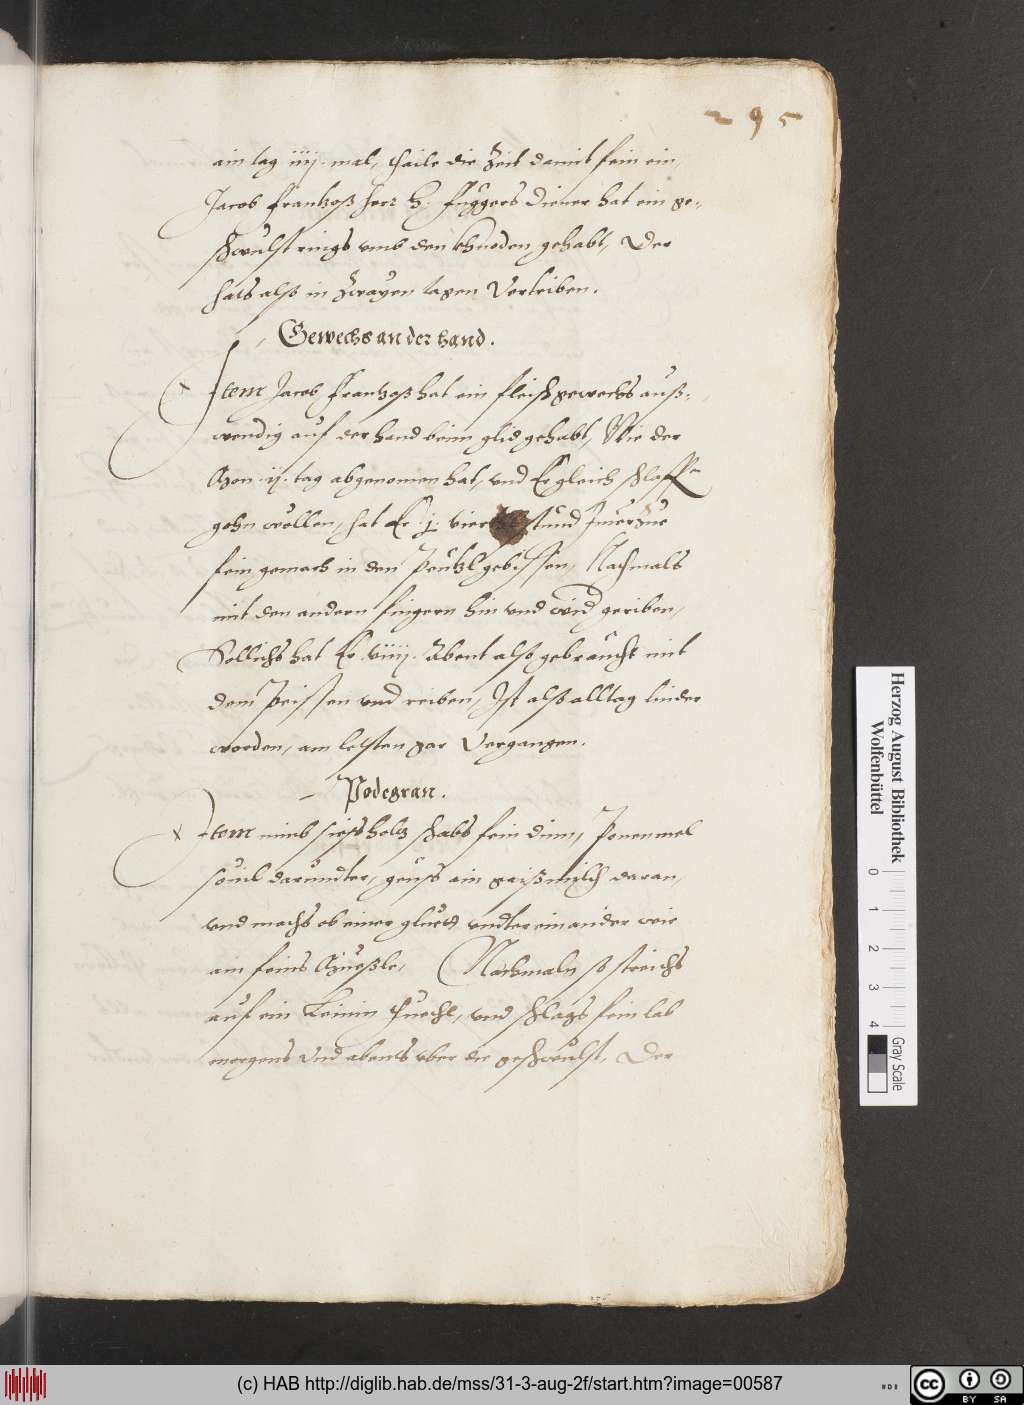 295
ain tag iiij. mal, thaile die Zeit damit fein ein,
Jacob Frantzoß herr H. Fuggers diener hat ein ge-
schwulst rings vmb den khnoden gehabt, Der
hats also in Zwayen tagen Vertriben.
Gewechs an der hand.
Item Jacob Frantzoß hat ein fleischgewechs auß-
wendig auf der hand beim glid gehabt, Wie der
Mon .ij. tag abgenomen hat, vnd Er gleich schlaffen
gehn wöllen, hat Er .j. viertl stund Jmerzue
fein gemach in den peützl gebissen, Nachmals
mit den andern fingern hin vnd wid geriben,
Sollichs hat Er .viiij. Abent also gebraücht mit
dem peissen vnd reiben, Ist also alltag linder
worden, am letsten gar Vergangen.
Podegran.
Item nimb siessholtz schabs fein dinn, Ponenmel
souil darundter, geuss ain gaißmilch daran,
vnd machs ob einer gluett vndtereinander wie
ain feins Mueßle, Nachmaln so streichs
auf ein Leinin thuech, vnd schlags fein lab
morgens vnd abents vber die geschwulst, Der
Herzog August Bibliothek
Wolfenbüttel
0 1 2 3 4
Gray Scale
(c) HAB http://diglib.hab.de/mss/31-3-aug-2f/start.htm?image=00587
cc BY SA